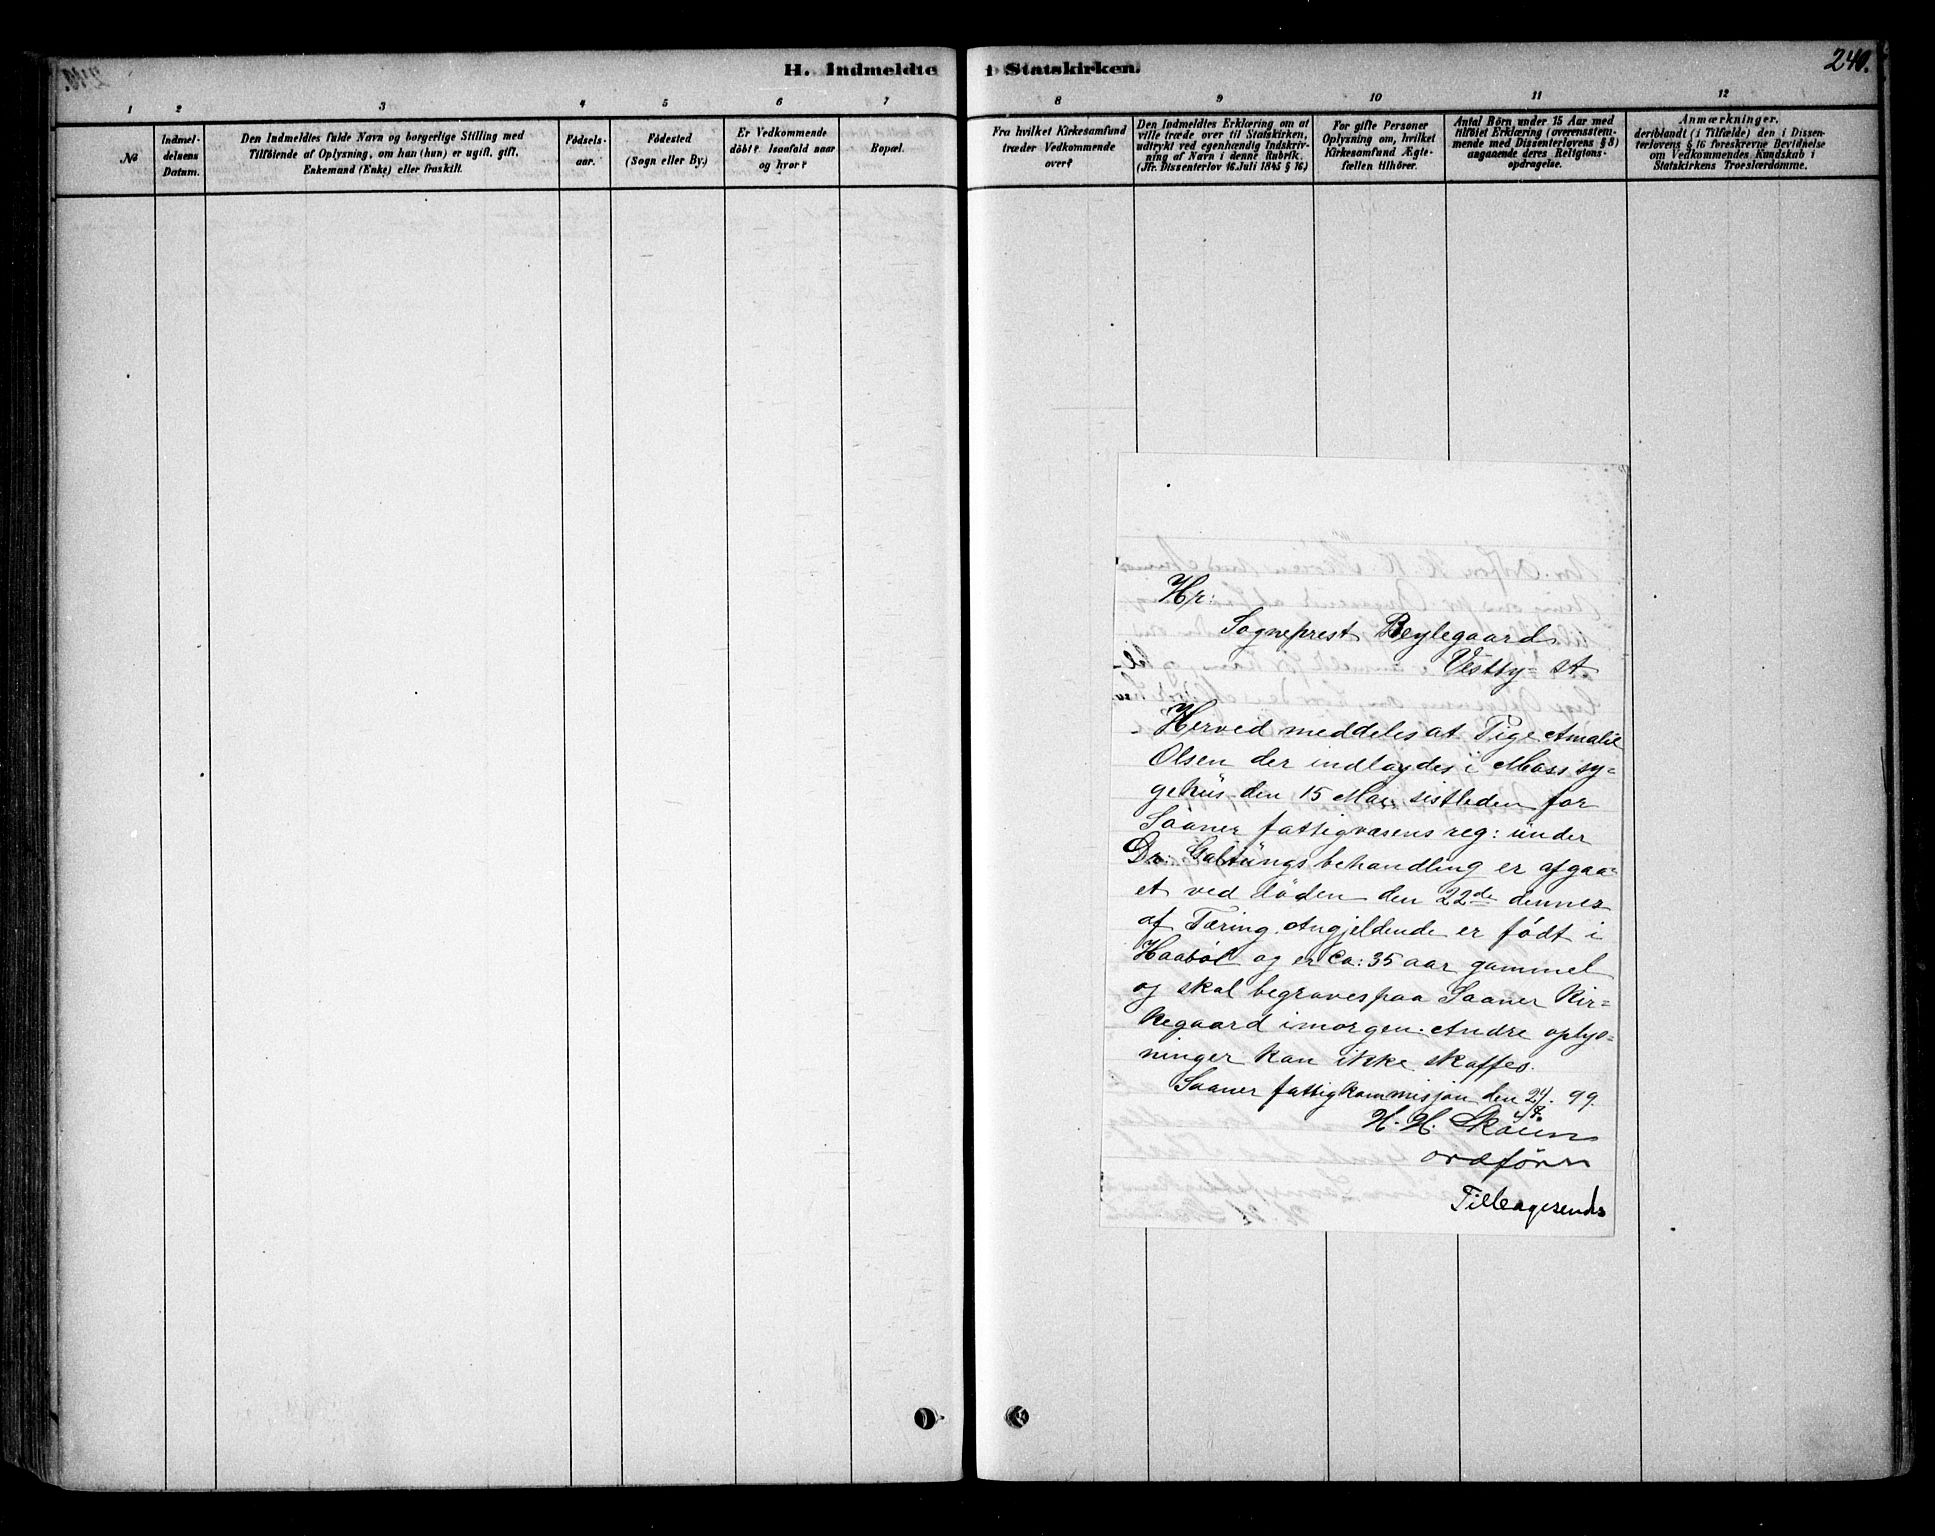 H. Indmeldte i Statskirken.
240.
1 2 3 4 5 6 7 8 9 10 11 12
No
Indmel-
delsens
Datum.
Den Indmeldtes fulde Navn og borgerlige Stilling med
Tilföiende af Oplysning, om han (hun) er ugift, gift,
Enkemand (Enke) eller fraskilt.
Födsels-
aar.
Födested
(Sogn eller By.)
Er Vedkommende
döbt? Isaafald naar
og hvor?
Bopæl.
Fra hvilket Kirkesamfund
træder Vedkommende
over?
Den Indmeldtes Erklæring om at
ville træde over til Statskirken,
udtrykt ved egenhændig Indskriv-
ning af Navn i denne Rubrik.
(Jfr. Dissenterlov 16. Juli 1845 § 16.)
For gifte Personer
Oplysning om, hvilket
Kirkesamfund Ægte-
fællen tilhörer.
Antal Börn under 15 Aar med
tilföiet Erklæring (overensstem-
mende med Dissenterlovens § 8)
angaaende deres Religions-
opdragelse.
Anmærkninger,
deriblandt (i Tilfælde) den i Dissen-
terlovens § 16 foreskrevne Bevidnelse
om Vedkommendes Kundskab i
Statskirkens Troeslærdomme.
Hr:
Sogneprest Beylegaard
Vestby st
Herved meddeles at Pige Amalie
Olsen der indlagdes i Moss sy-
gehus den 15 Mai sistleden for
Saaner fattigvæsens reg: under
Dr. Galtungs behandling er afgaa-
et ved döden den 22de dennes
af Tæring. Angjeldende er födt i
Haaböl og er Ca: 35 aar gammel
og skal begraves paa Saaner Kir-
kegaard imorgen. Andre oplys-
ninger kan ikke skaffes.
Saaner fattigkommisjon den 24/8. 99.
H. H. Skoien
ordförer